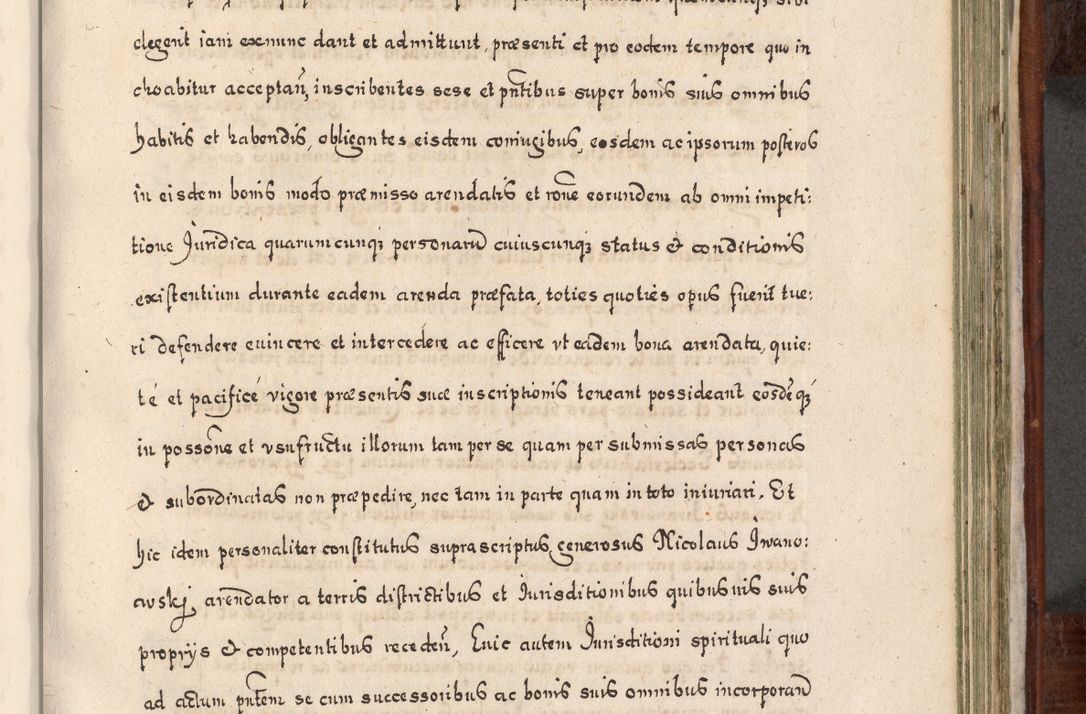 clegerit iam exnunc dant et admittunt, præsenti et pro eodem tempore quo in
choabitur acceptañ, inscribentes sese et pñtibus super bonis suis omnibus
habitis et habendis, obligantes eisdem coniugibus, eosdem ac ipsorum posteros
in eisdem bonis modo præmisso arendatis et rõne eorundem ab omni impeti:
tione Juridica quarumcunqȝ personarū cuiuscunqȝ status & conditionis
existentium durante eadem arenda præfata, toties quoties opus fuerit tue:
ri defendere euincere et intercedere ac efficere vt eadem bona arendata, quie:
té et pacificé vigore præsentis suæ inscriptionis teneant possideant eosdẽqȝ
in possõne et vsufructu illorum tam per se quam per submissas personas
& subordinatas non præpedire, nec tam in parte quam in toto iniuriari. Et
hic idem personaliter constitutus suprascriptus generosus Nicolaus Jwano:
wskj, arendator a terris districtibus et Jurisditionibus quibusuis suis
proprijs & competentibus recedeñ, Huic autem Jurisditioni spirituali quo
ad actum pñtem se cum successoribus ac bonis suis omnibus incorporañ